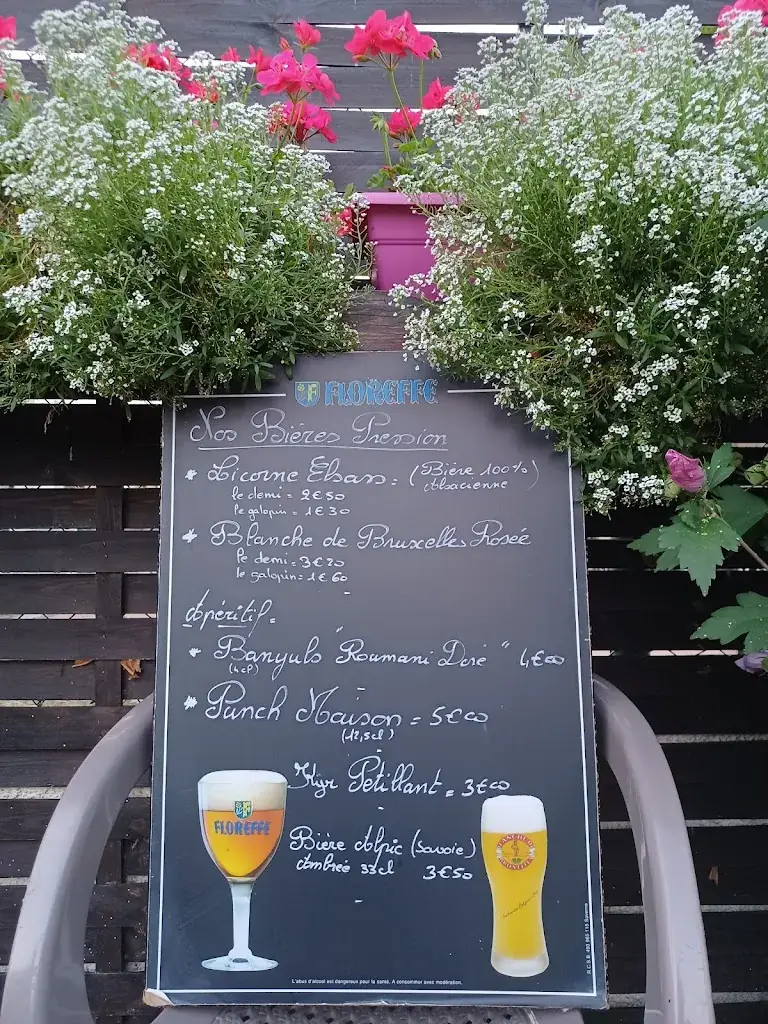 FLOREFFE
Nos Bières Pression
* Licorne Elsass : (Bière 100%)
Alsacienne
le demi = 2€50
le galopin = 1€30
* Blanche de Bruxelles Rosée
le demi = 3€20
le galopin = 1€60
Apéritif =
* Banyuls "Roumani Doré" 4€00
(4cl)
* Punch Maison = 5€00
(12,5cl)
Kyr Pétillant = 3€00
Bière Alpic (Savoie)
Ambrée 33cl 3€50
FLOREFFE
L'abus d'alcool est dangereux pour la santé. A consommer avec modération.